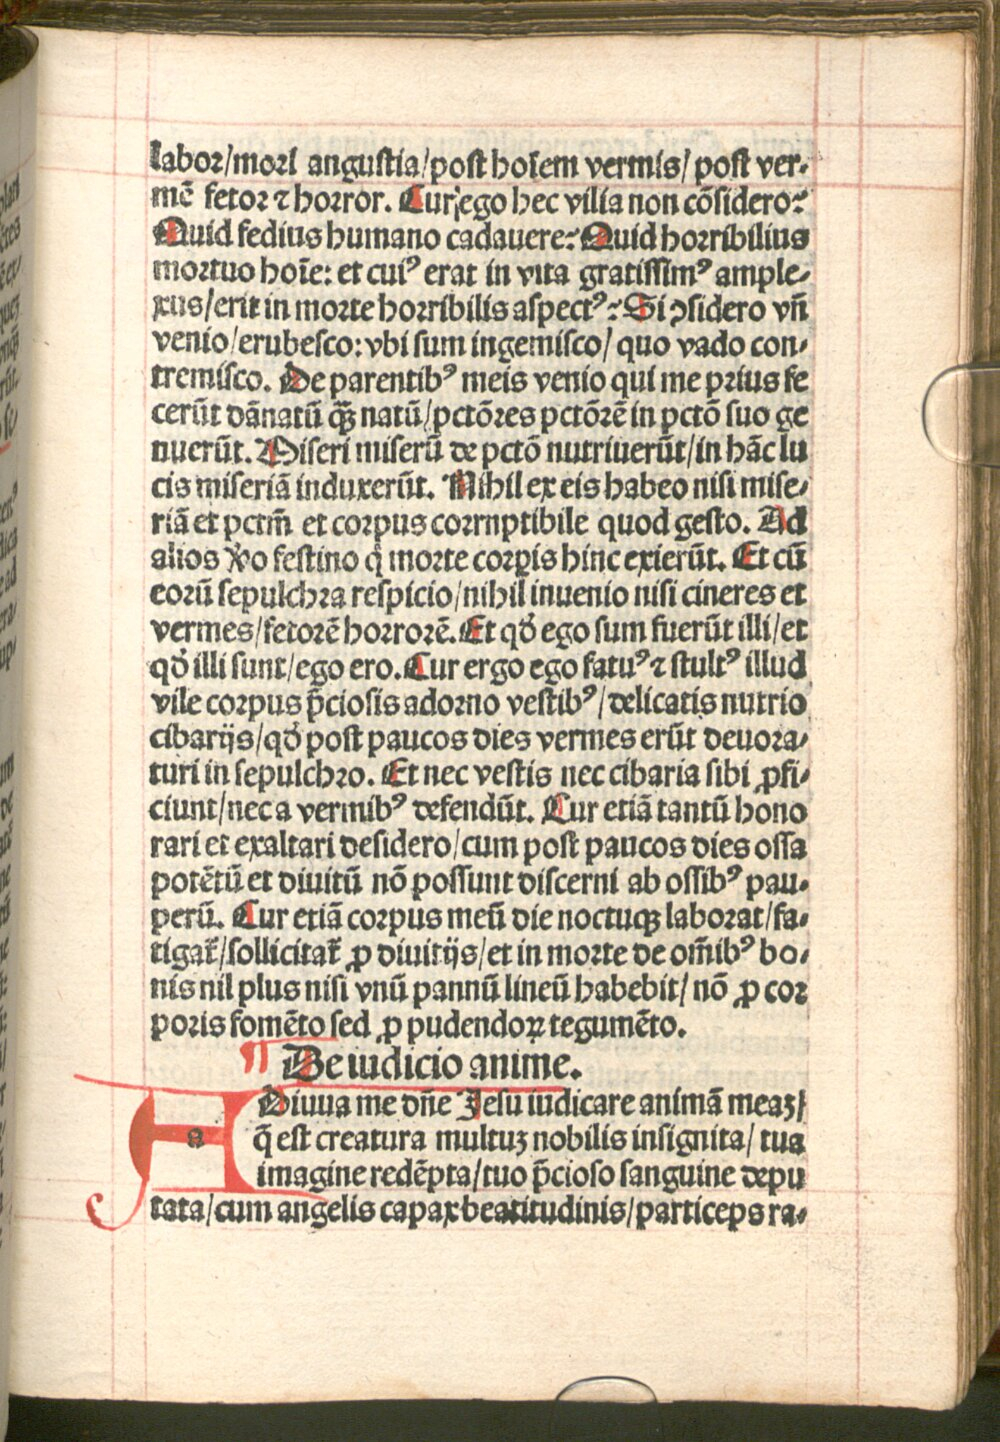 labor/mori angustia/post hoīem vermis/ post ver-
mē fetor ⁊ horror. Cur ergo hec vilia non cōsidero?
Quid fedius humano cadauere? Quid horribilius
mortuo hoīe: et cuiꝰ erat in vita gratissimꝰ ample-
xus/erit in morte horribilis aspectꝰ? Si ꝯsidero vñ
venio/erubesco: vbi sum ingemisco/ quo vado con-
tremisco. De parentibꝰ meis venio qui me prius fe
cerūt dānatū qꝫ̄ natū/pctōres pctōrē in pctō suo ge
nuerūt. Miseri miserū de pctō nutriuerūt/in hāc lu
cis miseriā induxerūt. Nihil ex eis habeo nisi mise-
riā et pctm̄ et corpus corrnptibile quod gesto. Ad
alios ꝟo festino q̇ morte corꝑis hinc exierūt. Et cū
eorū sepulchra respicio/nihil inuenio nisi cineres et
vermes/fetorē horrorē. Et qđ ego sum fuerūt illi/et
qđ illi sunt/ego ero. Cur ergo ego fatuꝰ ⁊ stultꝰ illud
vile corpus p̄ciosis adorno vestibꝰ/delicatis nutrio
cibarijs/qđ post paucos dies vermes erūt deuora-
turi in sepulchro. Et nec vestis nec cibaria sibi ꝓfi-
ciunt/nec a vermibꝰ defendūt. Cur etiā tantū hono
rari et exaltari desidero/cum post paucos dies ossa
potētū et diuitū nō possunt discerni ab ossibꝰ pau-
perū. Cur etiā corpus meū die noctuqꝫ laborat/fa-
tigat᷑/sollicitat᷑ ꝓ diuitijs/et in morte de om̄ibꝰ bo-
nis nil plus nisi vnū pannū lineū habebit/ nō ꝓ cor
poris fomēto sed ꝓ pudendoꝝ tegumēto.
¶ De iudicio anime.
A a Diuua me dn̄e Jesu iudicare animā meaꝫ/
q̄ est creatura multuꝫ nobilis insignita/ tua
imagine redēpta/tuo p̄cioso sanguine depu
tata/cum angelis capax beatitudinis/particeps ra-